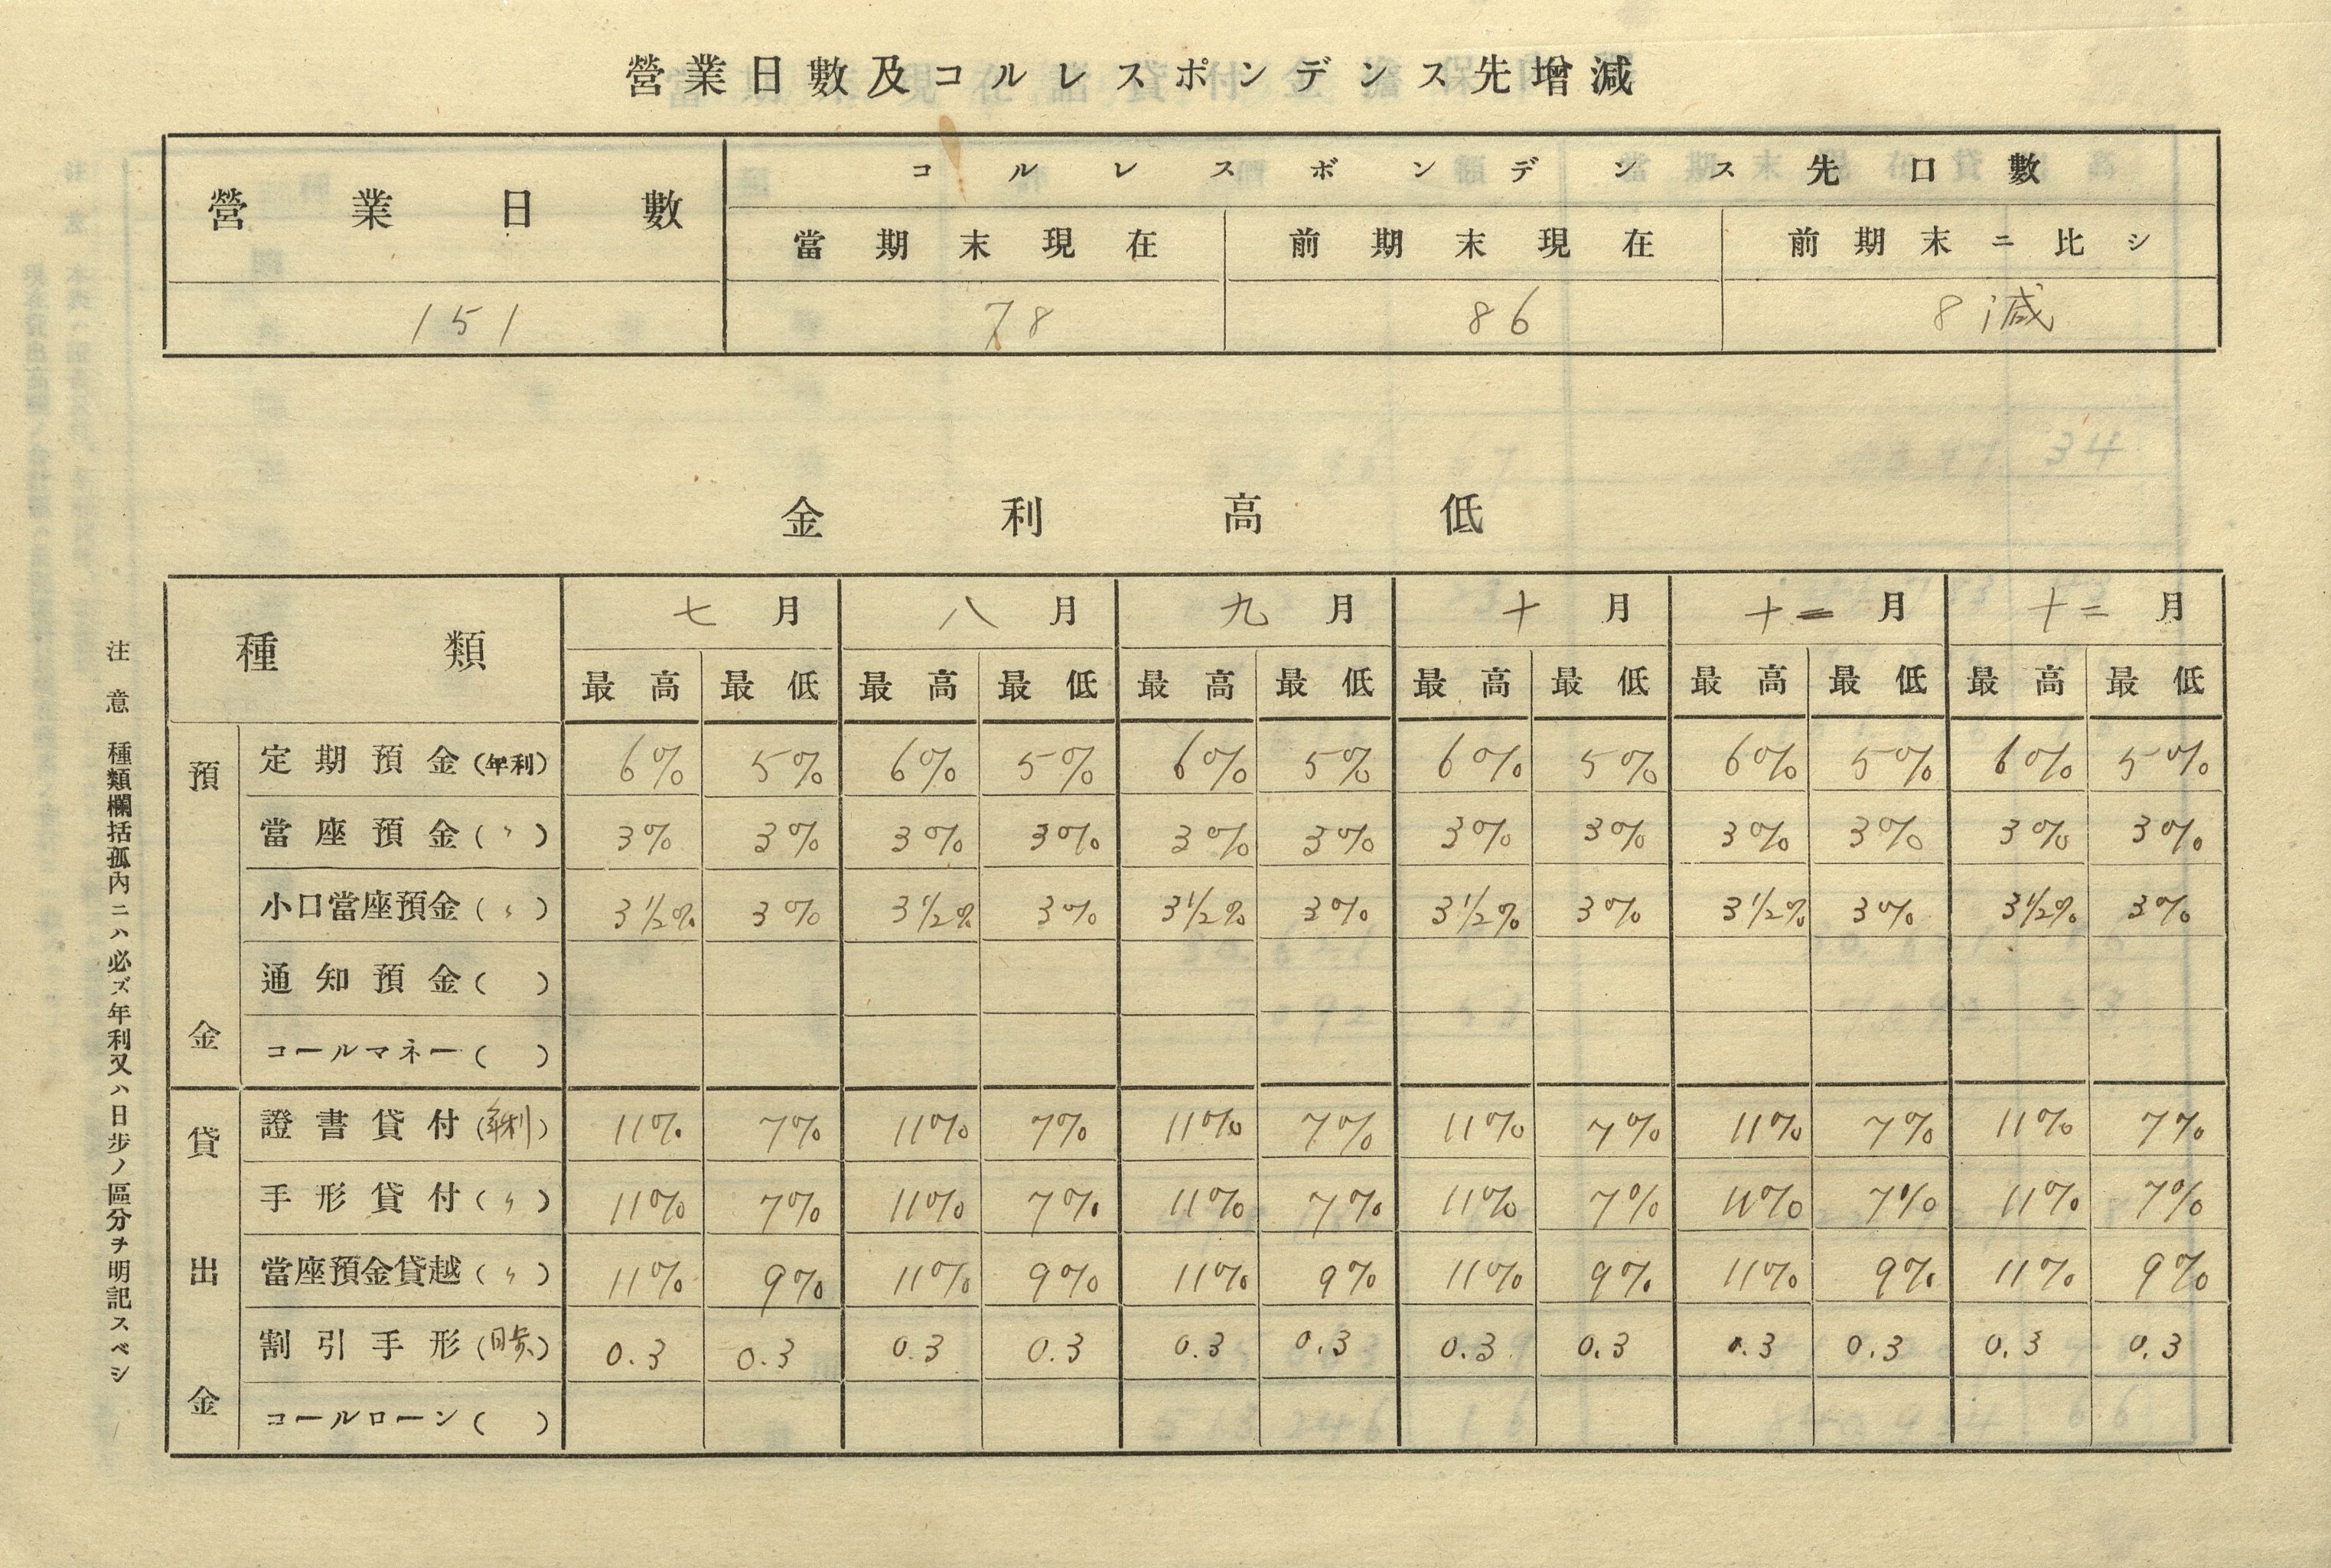 營業日數及コルレスポンデンス先增減
營業日數 コルレスボンデンス先口數
當期末現在 前期末現在 前期末ニ比シ
151 78 86 8減
金利高低
種類 七月 八月 九月 十月 十一月 十二月
最高 最低 最高 最低 最高 最低 最高 最低 最高 最低 最高 最低
預金
定期預金(年利) 6% 5% 6% 5% 6% 5% 6% 5% 6% 5% 6% 5%
當座預金(〃) 3% 3% 3% 3% 3% 3% 3% 3% 3% 3% 3% 3%
小口當座預金(〃) 3½% 3% 3½% 3% 3½% 3% 3½% 3% 3½% 3% 3½% 3%
通知預金( )
コールマネー( )
貸出金
證書貸付(年利) 11% 7% 11% 7% 11% 7% 11% 7% 11% 7% 11% 7%
手形貸付(〃) 11% 7% 11% 7% 11% 7% 11% 7% 11% 7% 11% 7%
當座預金貸越(〃) 11% 9% 11% 9% 11% 9% 11% 9% 11% 9% 11% 9%
割引手形(日歩) 0.3 0.3 0.3 0.3 0.3 0.3 0.3 0.3 0.3 0.3 0.3 0.3
コールローン( )
注意 種類欄括孤內ニハ必ズ年利又ハ日步ノ區分ヲ明記スベシ